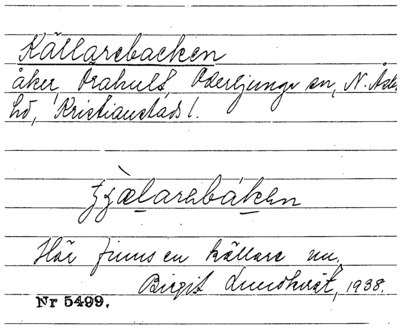 Källarebacken
åker, Orahult, Oderljunga sn, N. Åsbo
hd, Kristianstads l.
Här finns en källare nu.
Birgit Lundkvist, 1938.
Nr 5499.